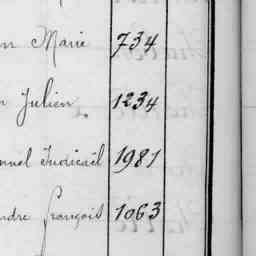 n Marie 734
n Julien 1234
nuel Judicaël 1981
ndre françois 1063